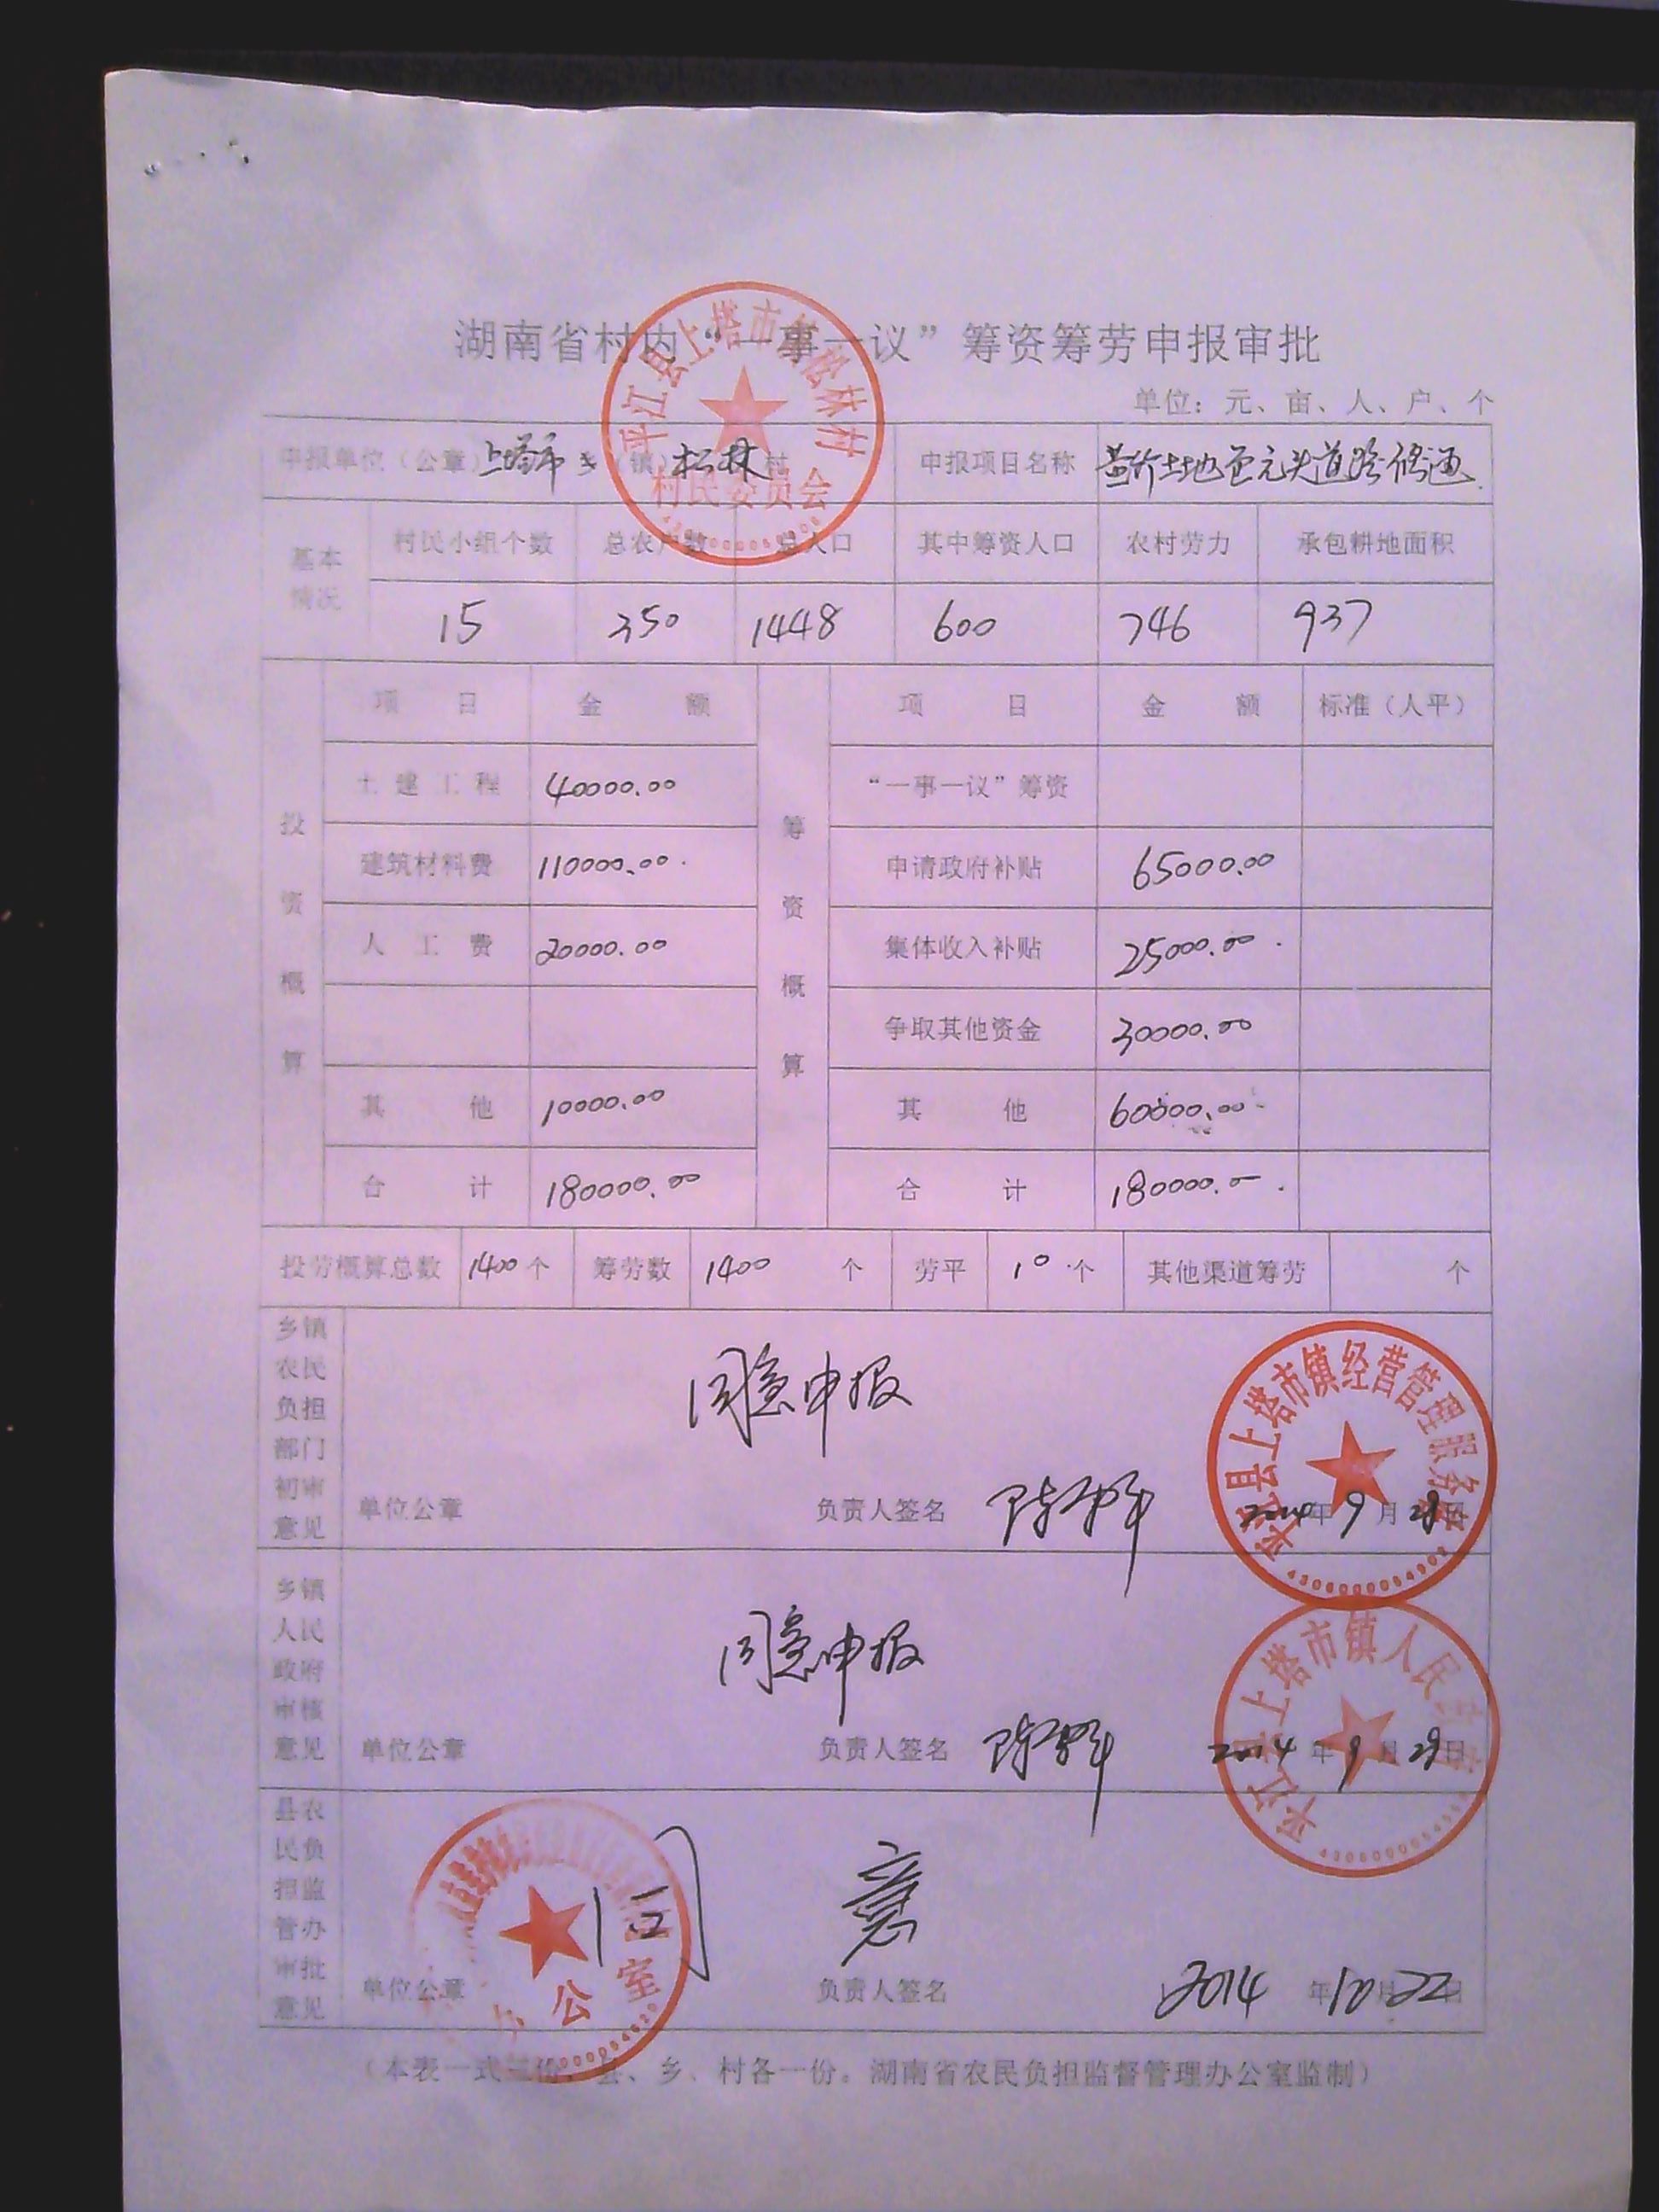 湖南省村内“一事一议”筹资筹劳申报审批
单位：元、亩、人、户、个
申报单位（公章）上塔市乡（镇）松林村 申报项目名称 道路修通
平江县上塔市镇松林村
村民委员会
基本情况 村民小组个数 总农户数 总人口 其中筹资人口 农村劳力 承包耕地面积
15 350 1448 600 746 937
投资概算 项目 金额 筹资概算 项目 金额 标准（人平）
土建工程 40000.00 “一事一议”筹资
建筑材料费 110000.00 申请政府补贴 65000.00
人工费 20000.00 集体收入补贴 25000.00
争取其他资金 30000.00
其他 10000.00 其他 60000.00
合计 180000.00 合计 180000.00
投劳概算总数 1400个 筹劳数 1400 个 劳平 10个 其他渠道筹劳 个
乡镇农民负担部门初审意见 同意申报
单位公章 负责人签名 2014年9月28日
平江县上塔市镇经营管理服务站
乡镇人民政府审核意见 同意申报
单位公章 负责人签名 2014年9月29日
平江县上塔市镇人民政府
县农民负担监管办审批意见 同意
单位公章 负责人签名 2014年10月22日
办公室
（本表一式三份，县、乡、村各一份。湖南省农民负担监督管理办公室监制）